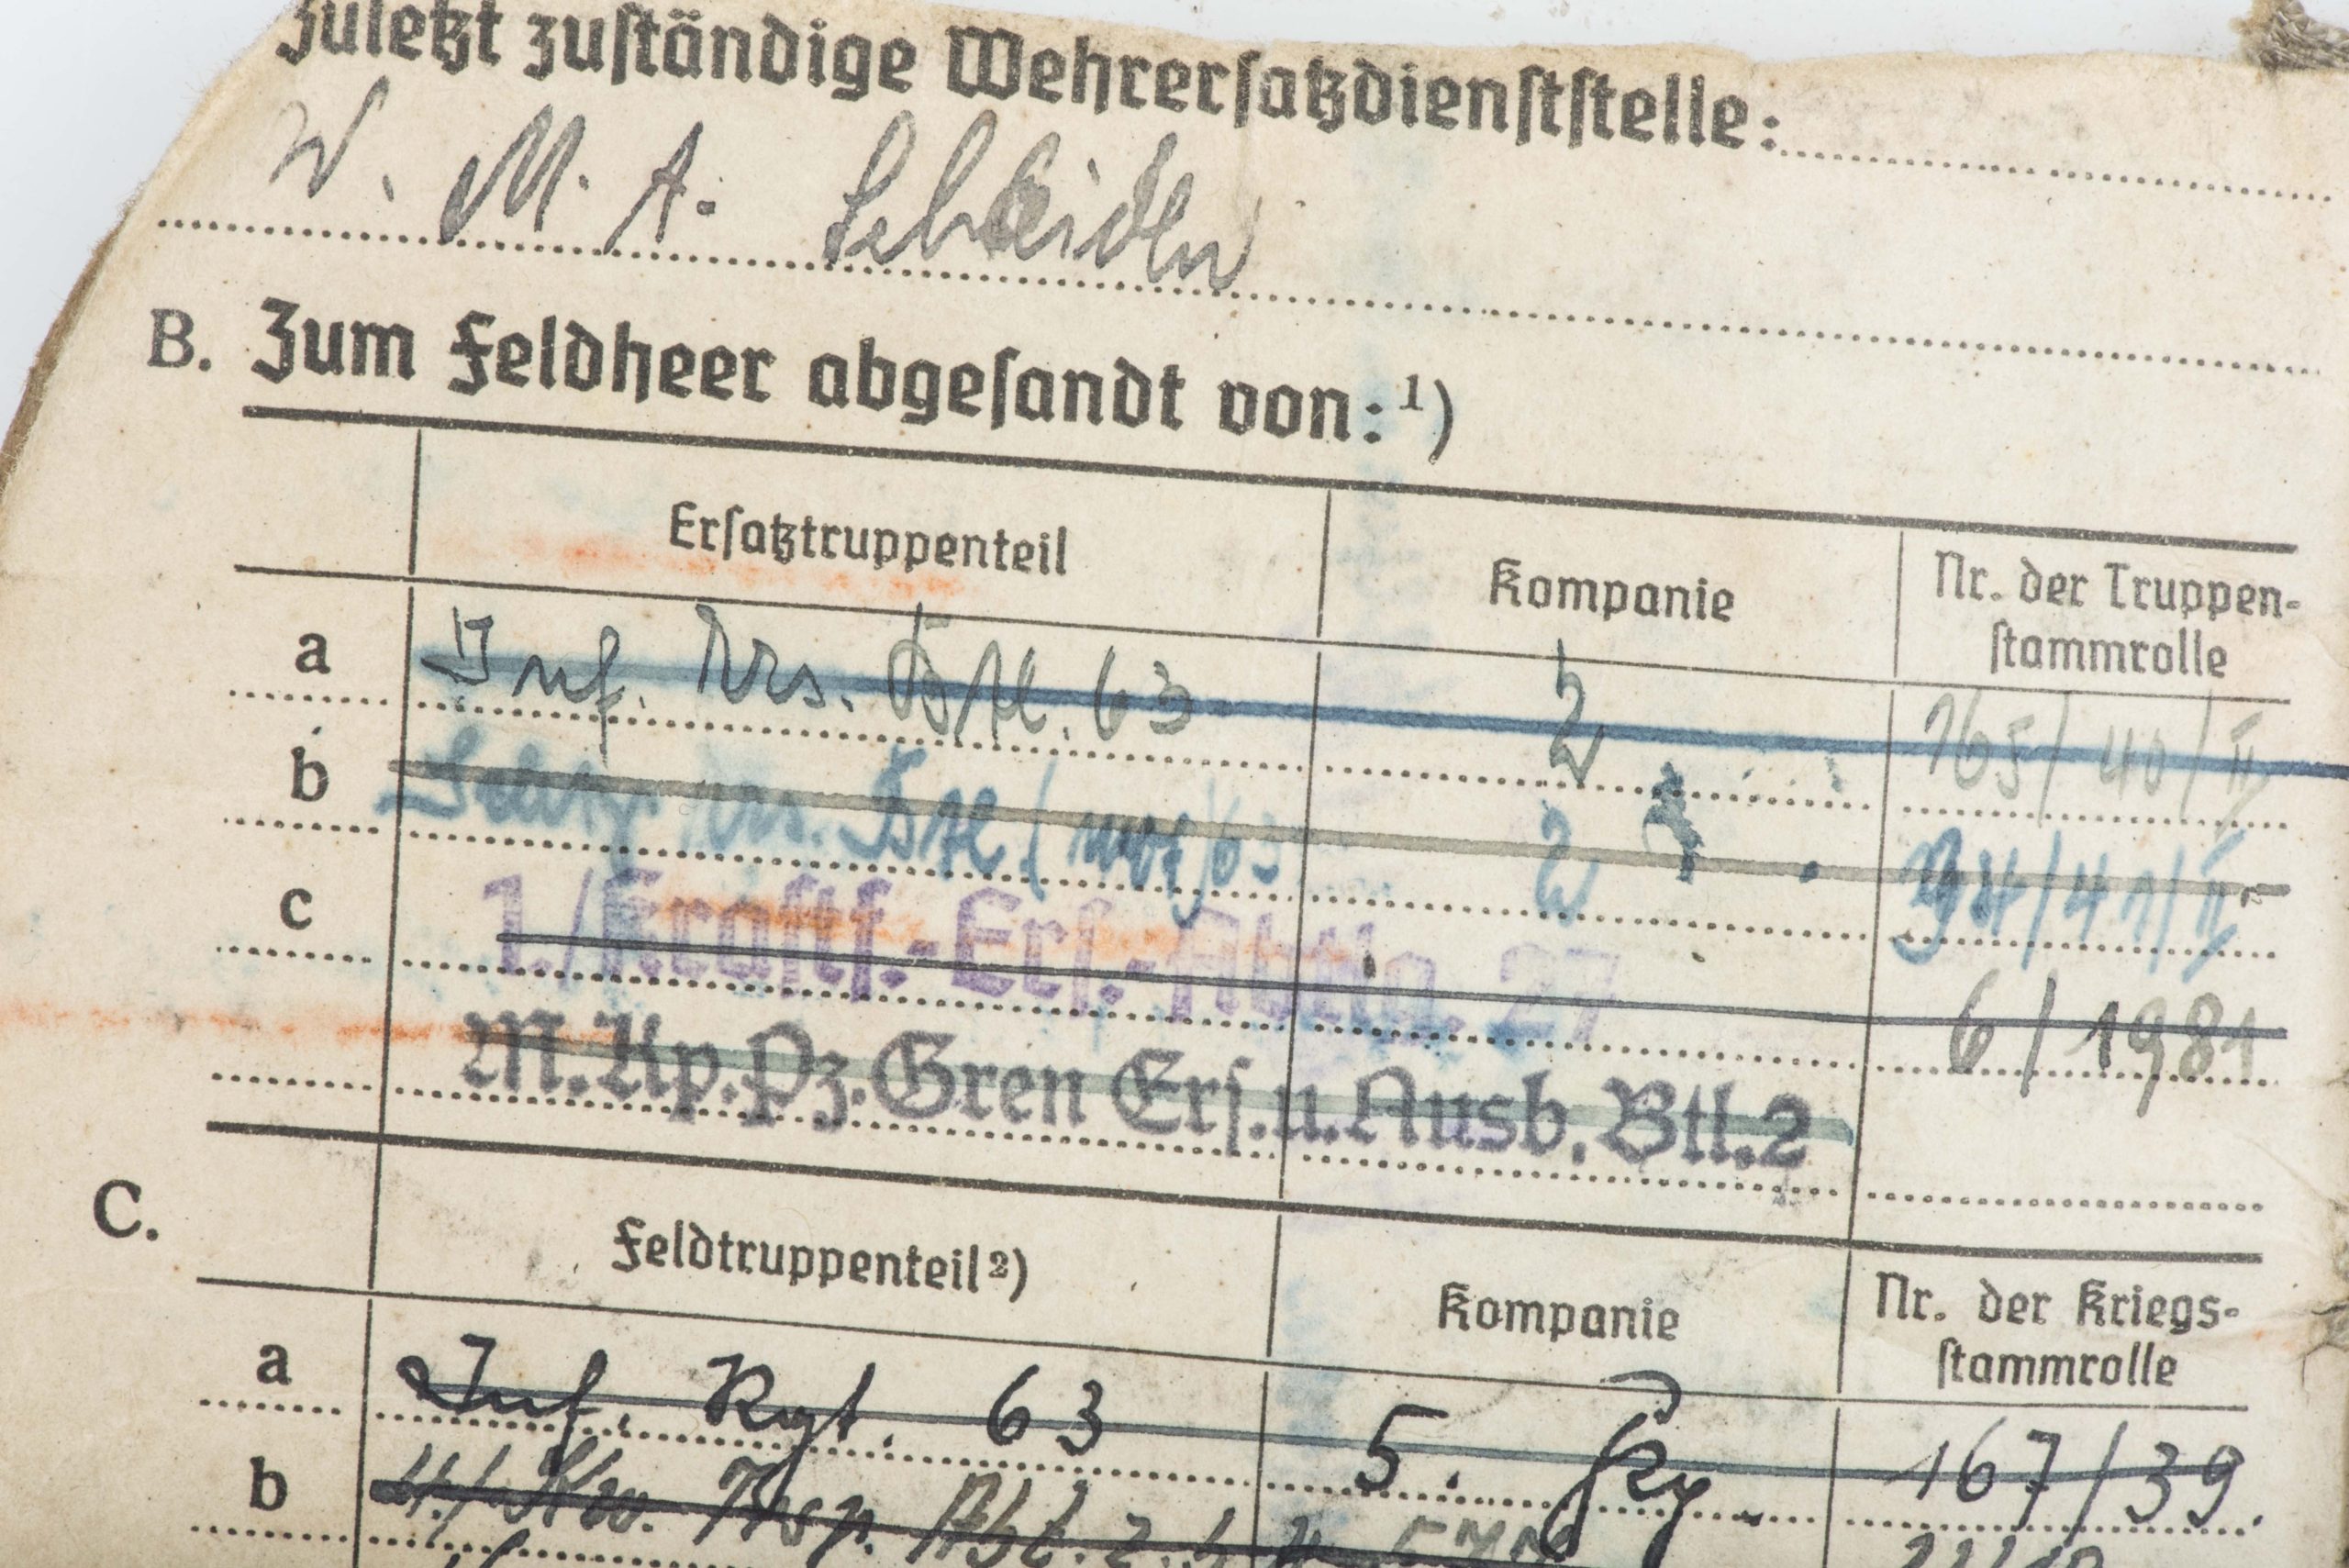 Zuletzt zuständige Wehrersatzdienststelle:
W. M. A.
B. Zum Feldheer abgesandt von:¹)
Ersatztruppenteil Kompanie Nr. der Truppen-
stammrolle
a Inf. Ers. Btl. 63 2 165/40/II
b Ers. Btl. (mot) 63 2 /41/II
c 1./Kraftf.-Ers.-Abtlg. 27 6/1981
M.Kp.Pz.Gren Ers.u.Ausb.Btl.2
C. Feldtruppenteil²) Kompanie Nr. der Kriegs-
stammrolle
a Inf. Rgt. 63 5. Kp. 167/39.
b